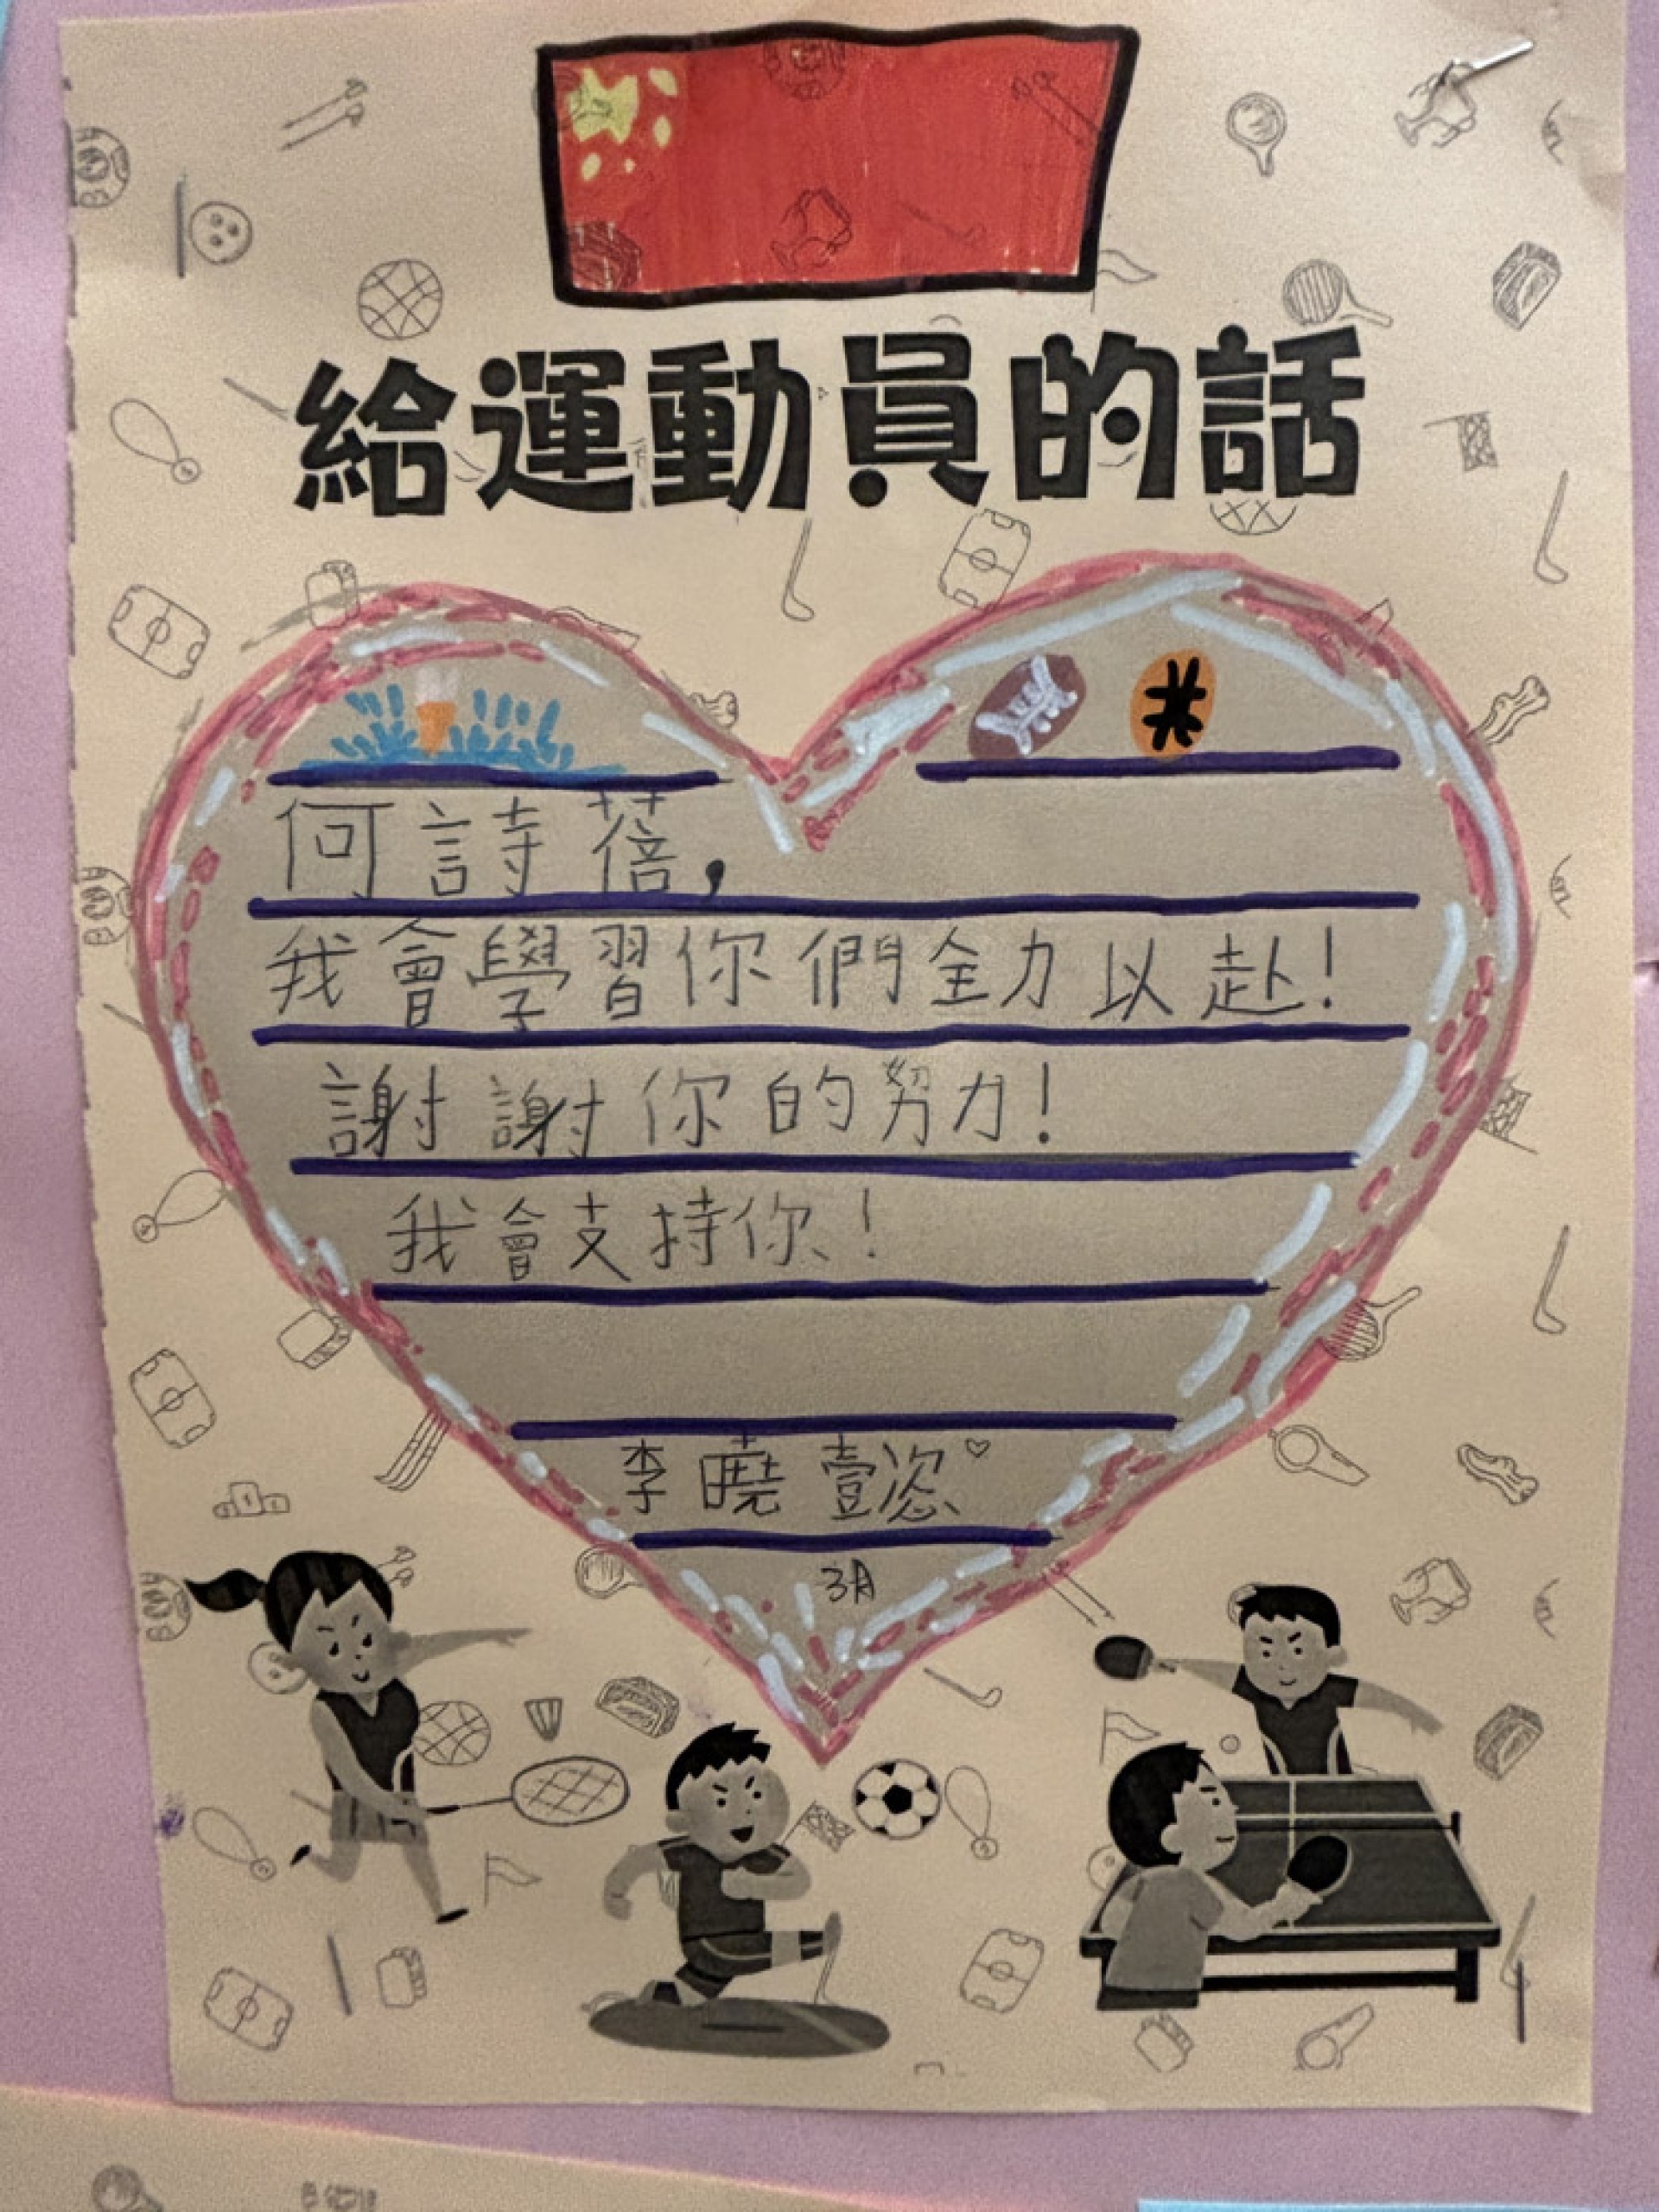 給運動員的話
何詩蓓,
我會學習你們全力以赴!
謝謝你的努力!
我會支持你!
李曉壹恣♡
3月